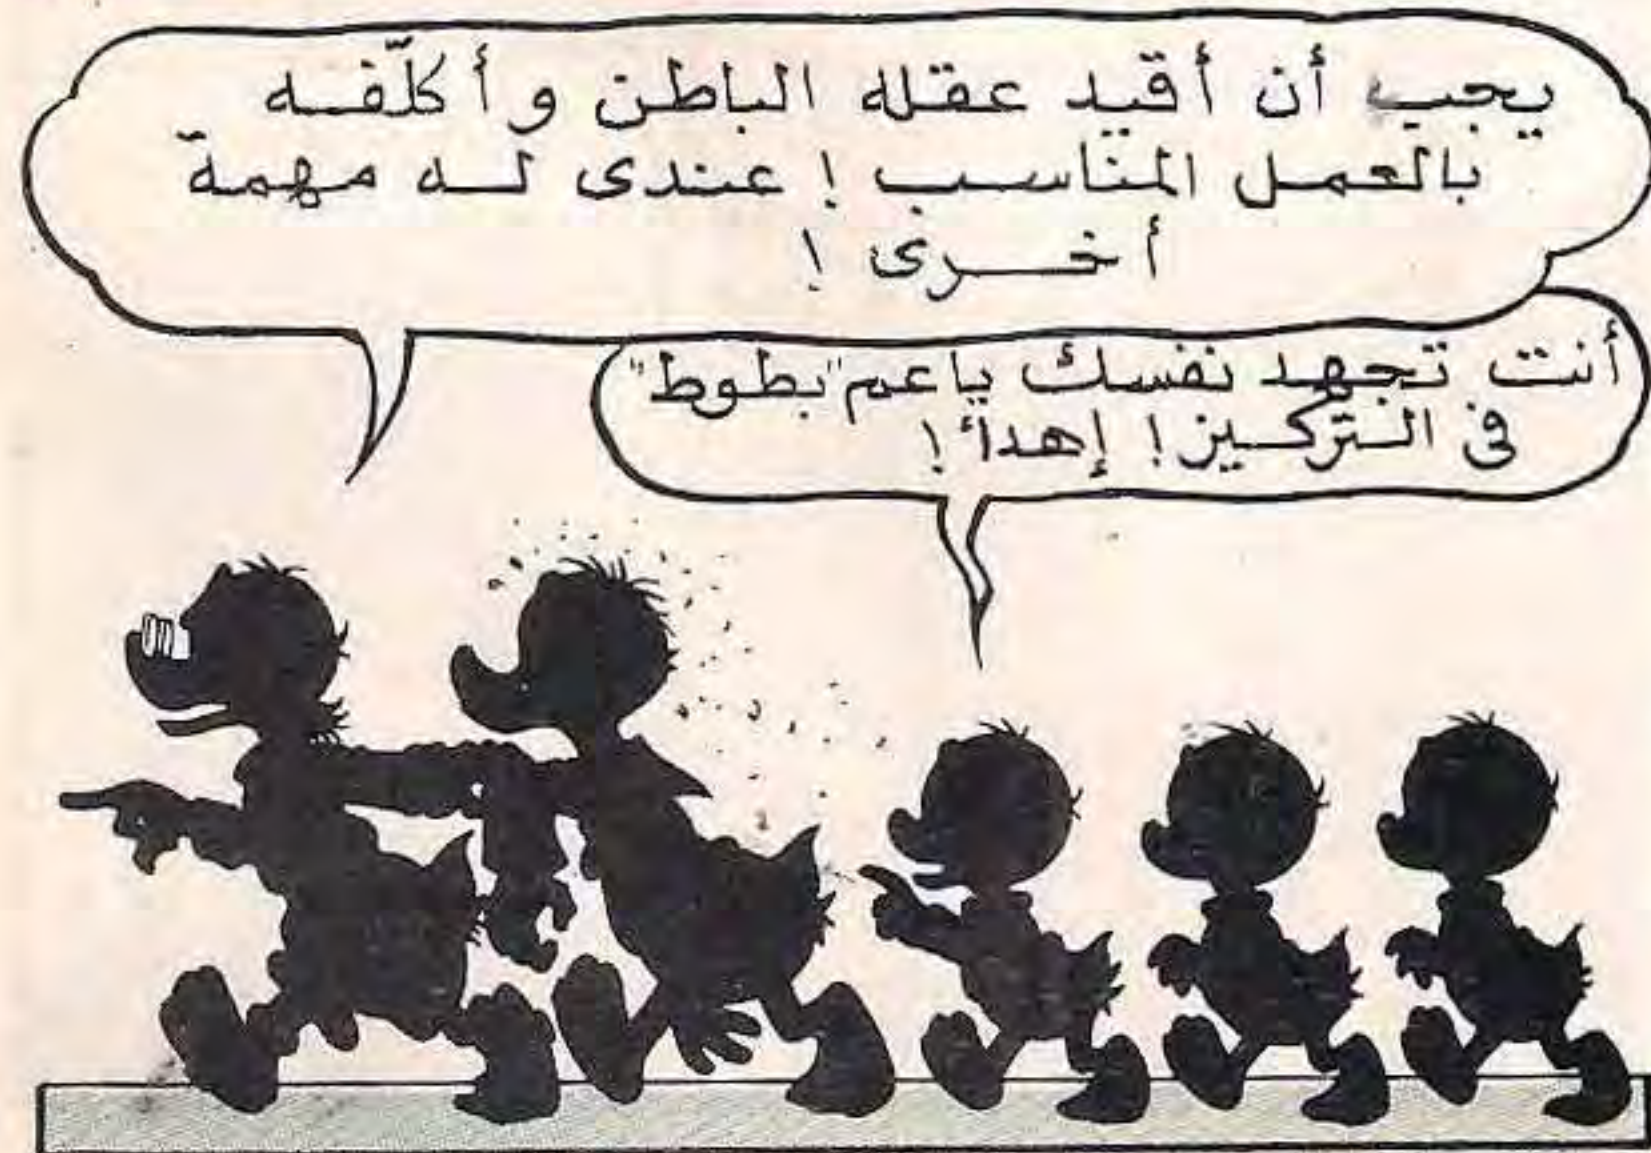 يجب أن أقيد عقله الباطن وأكلّفه
بالعمل المناسب ! عندى له مهمة
أخرى !
أنت تجهد نفسك ياعم "بطوط"
فى التركيز ! إهدأ !